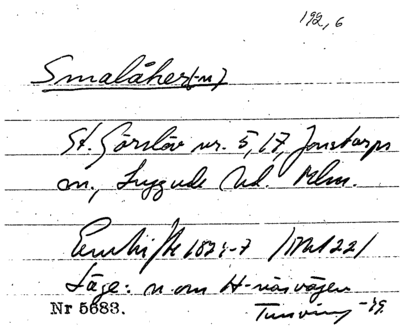 192,6
Smalåker(-n)
St. Görslöv nr. 5, 17, Jonstorps
sn., Luggude hd. Mlm.
1824-7 /122/
Läge: n om H-näsvägen
Nr 5683. Tunving -39.